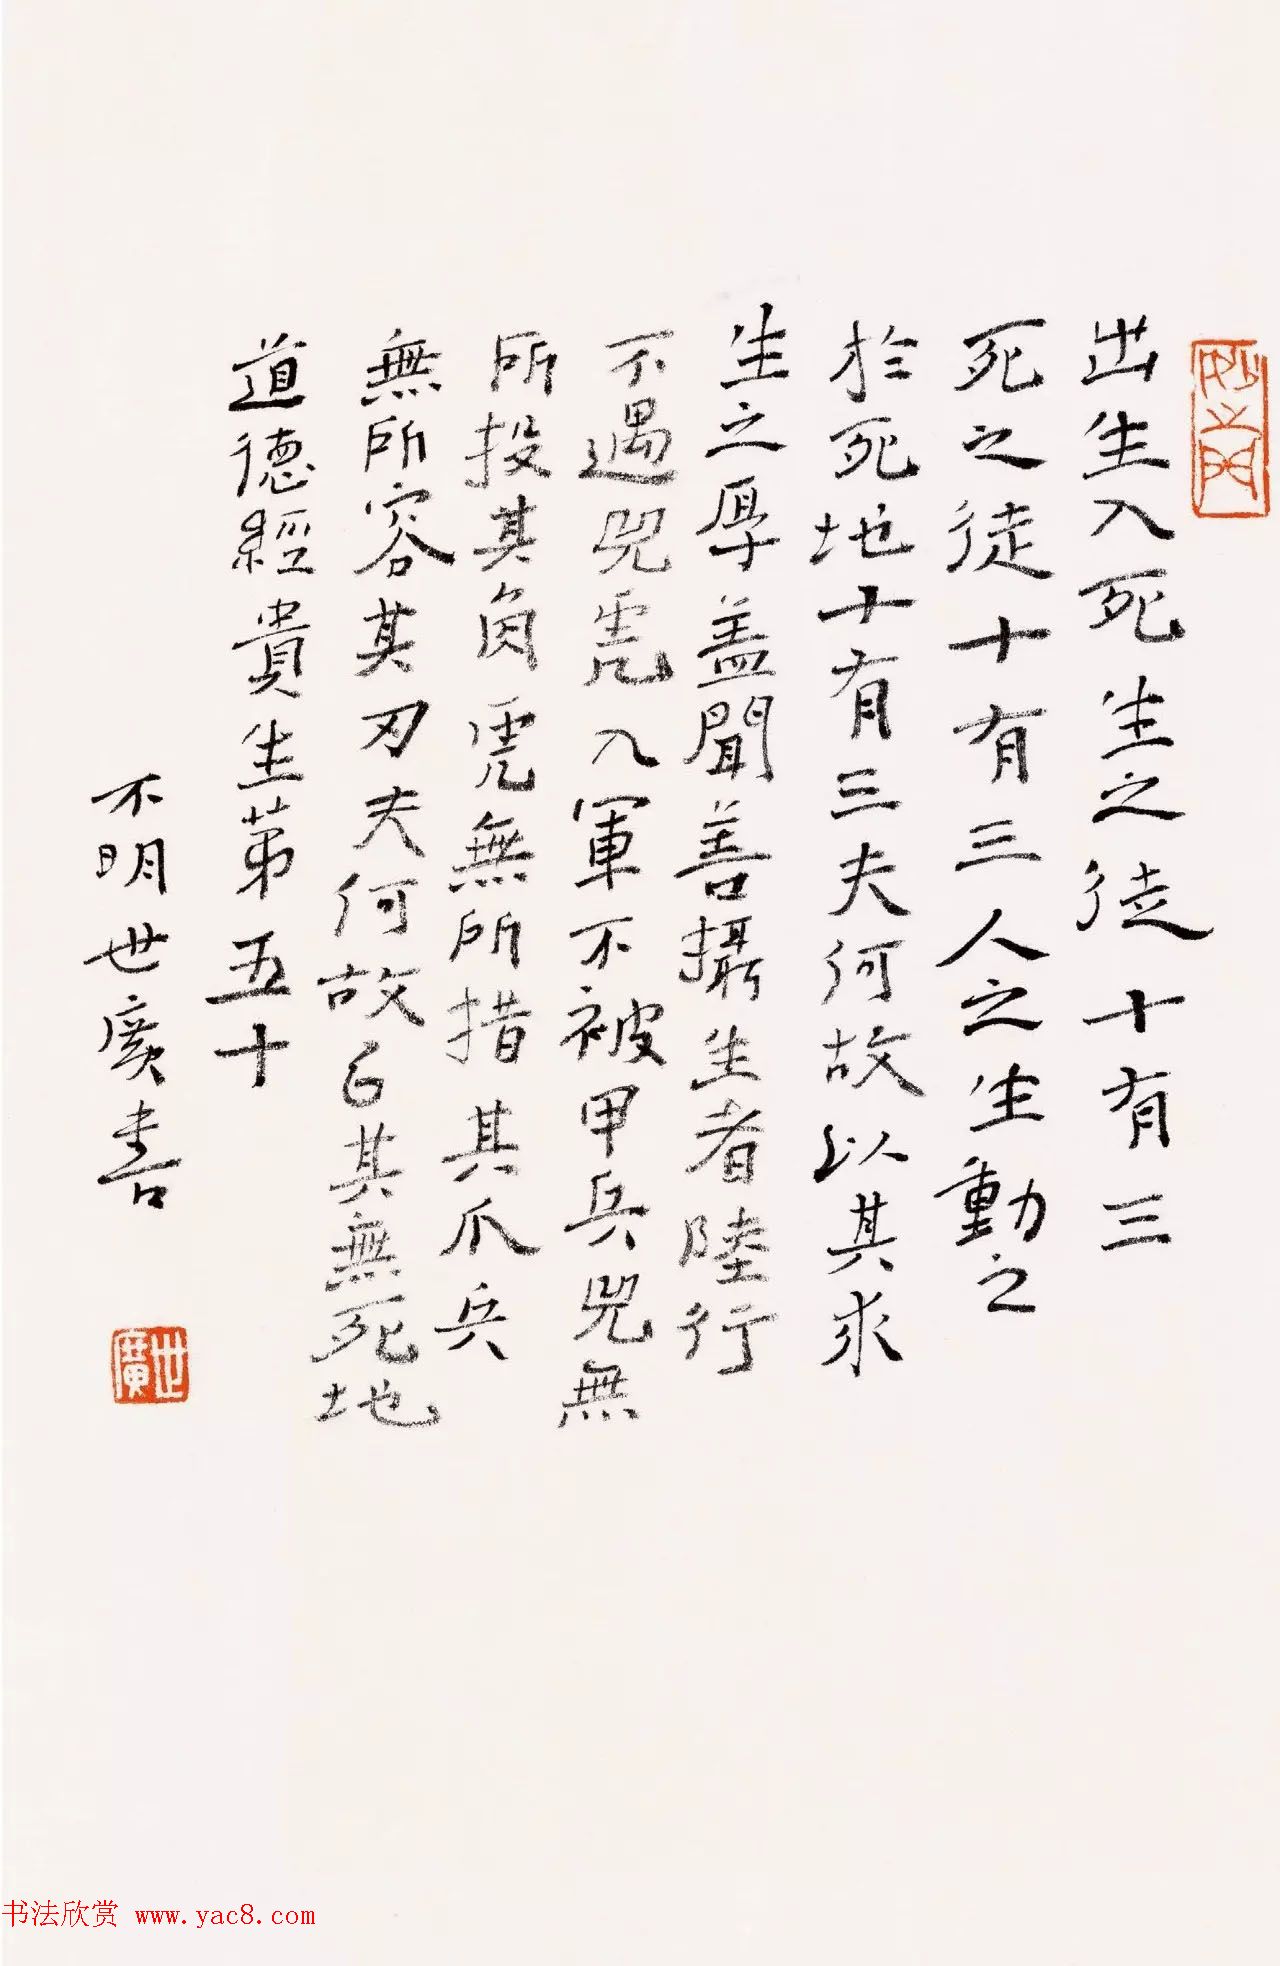 妙之門
出生入死生之徒十有三
死之徒十有三人之生動之
於死地十有三夫何故以其求
生之厚蓋聞善攝生者陸行
不遇兕虎入軍不被甲兵兕無
所投其角虎無所措其爪兵
無所容其刃夫何故以其無死地
道德經貴生第五十
不明世廣書
世廣
书法欣赏 www.yac8.com